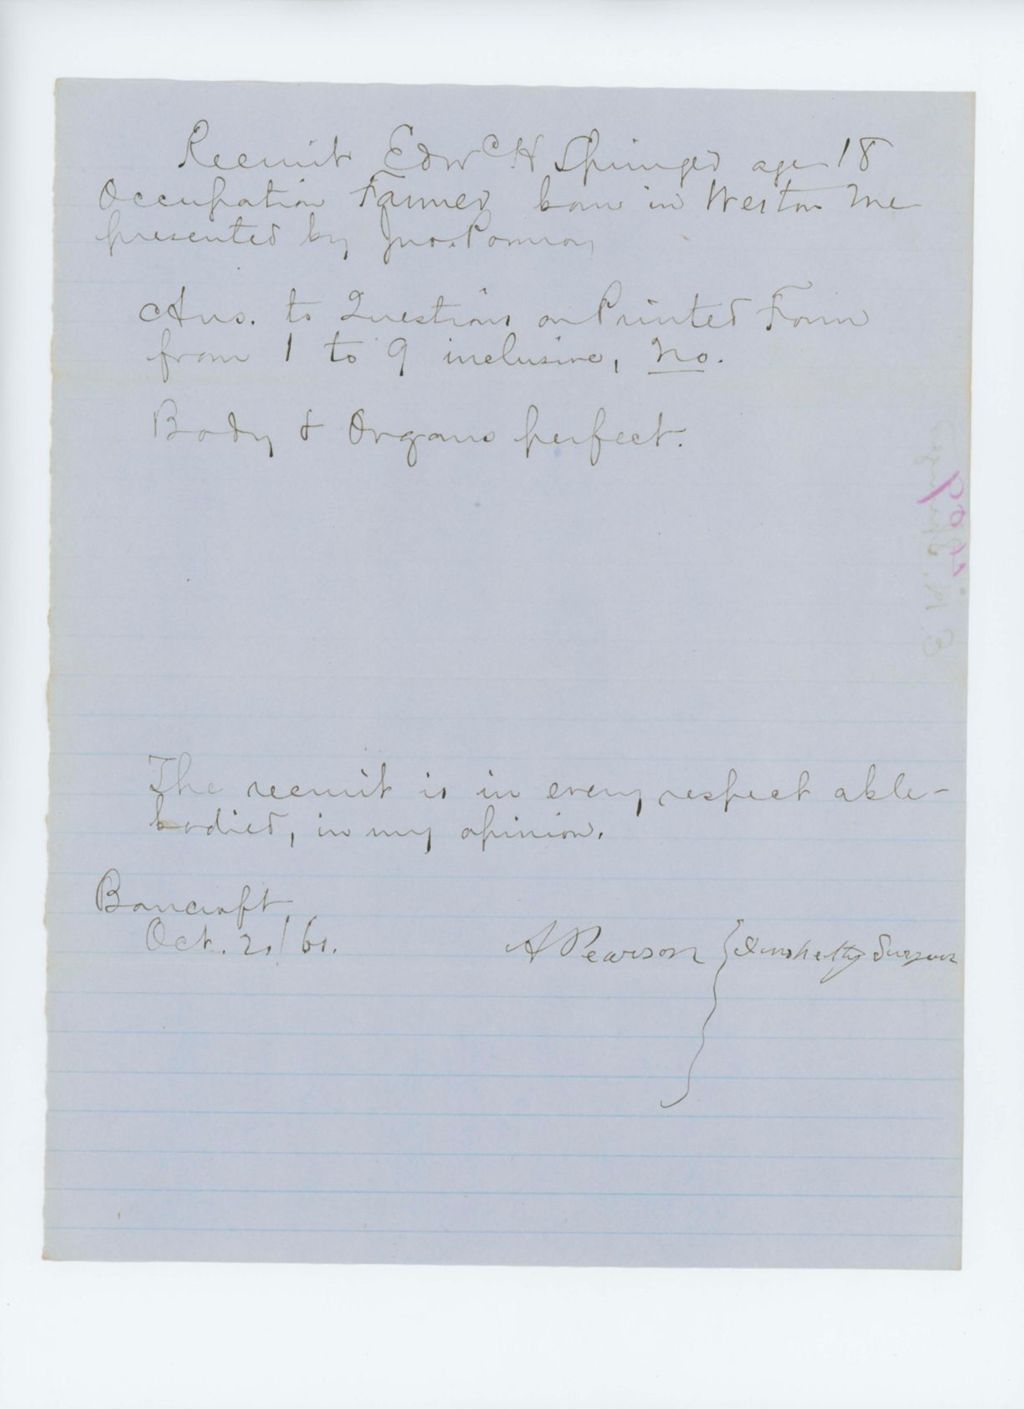 Recruit Edw^c H Springer age 18
Occupation Farmer born in Weston Me
presented by Jno. Pomroy
Ans. to Questions on Printed Form
from 1 to 9 inclusive, No.
Body & Organs perfect.
The recruit is in every respect able-
bodied, in my opinion.
Bancroft
Oct. 21/61.
A Pearson Surgeon
E. H. Springer